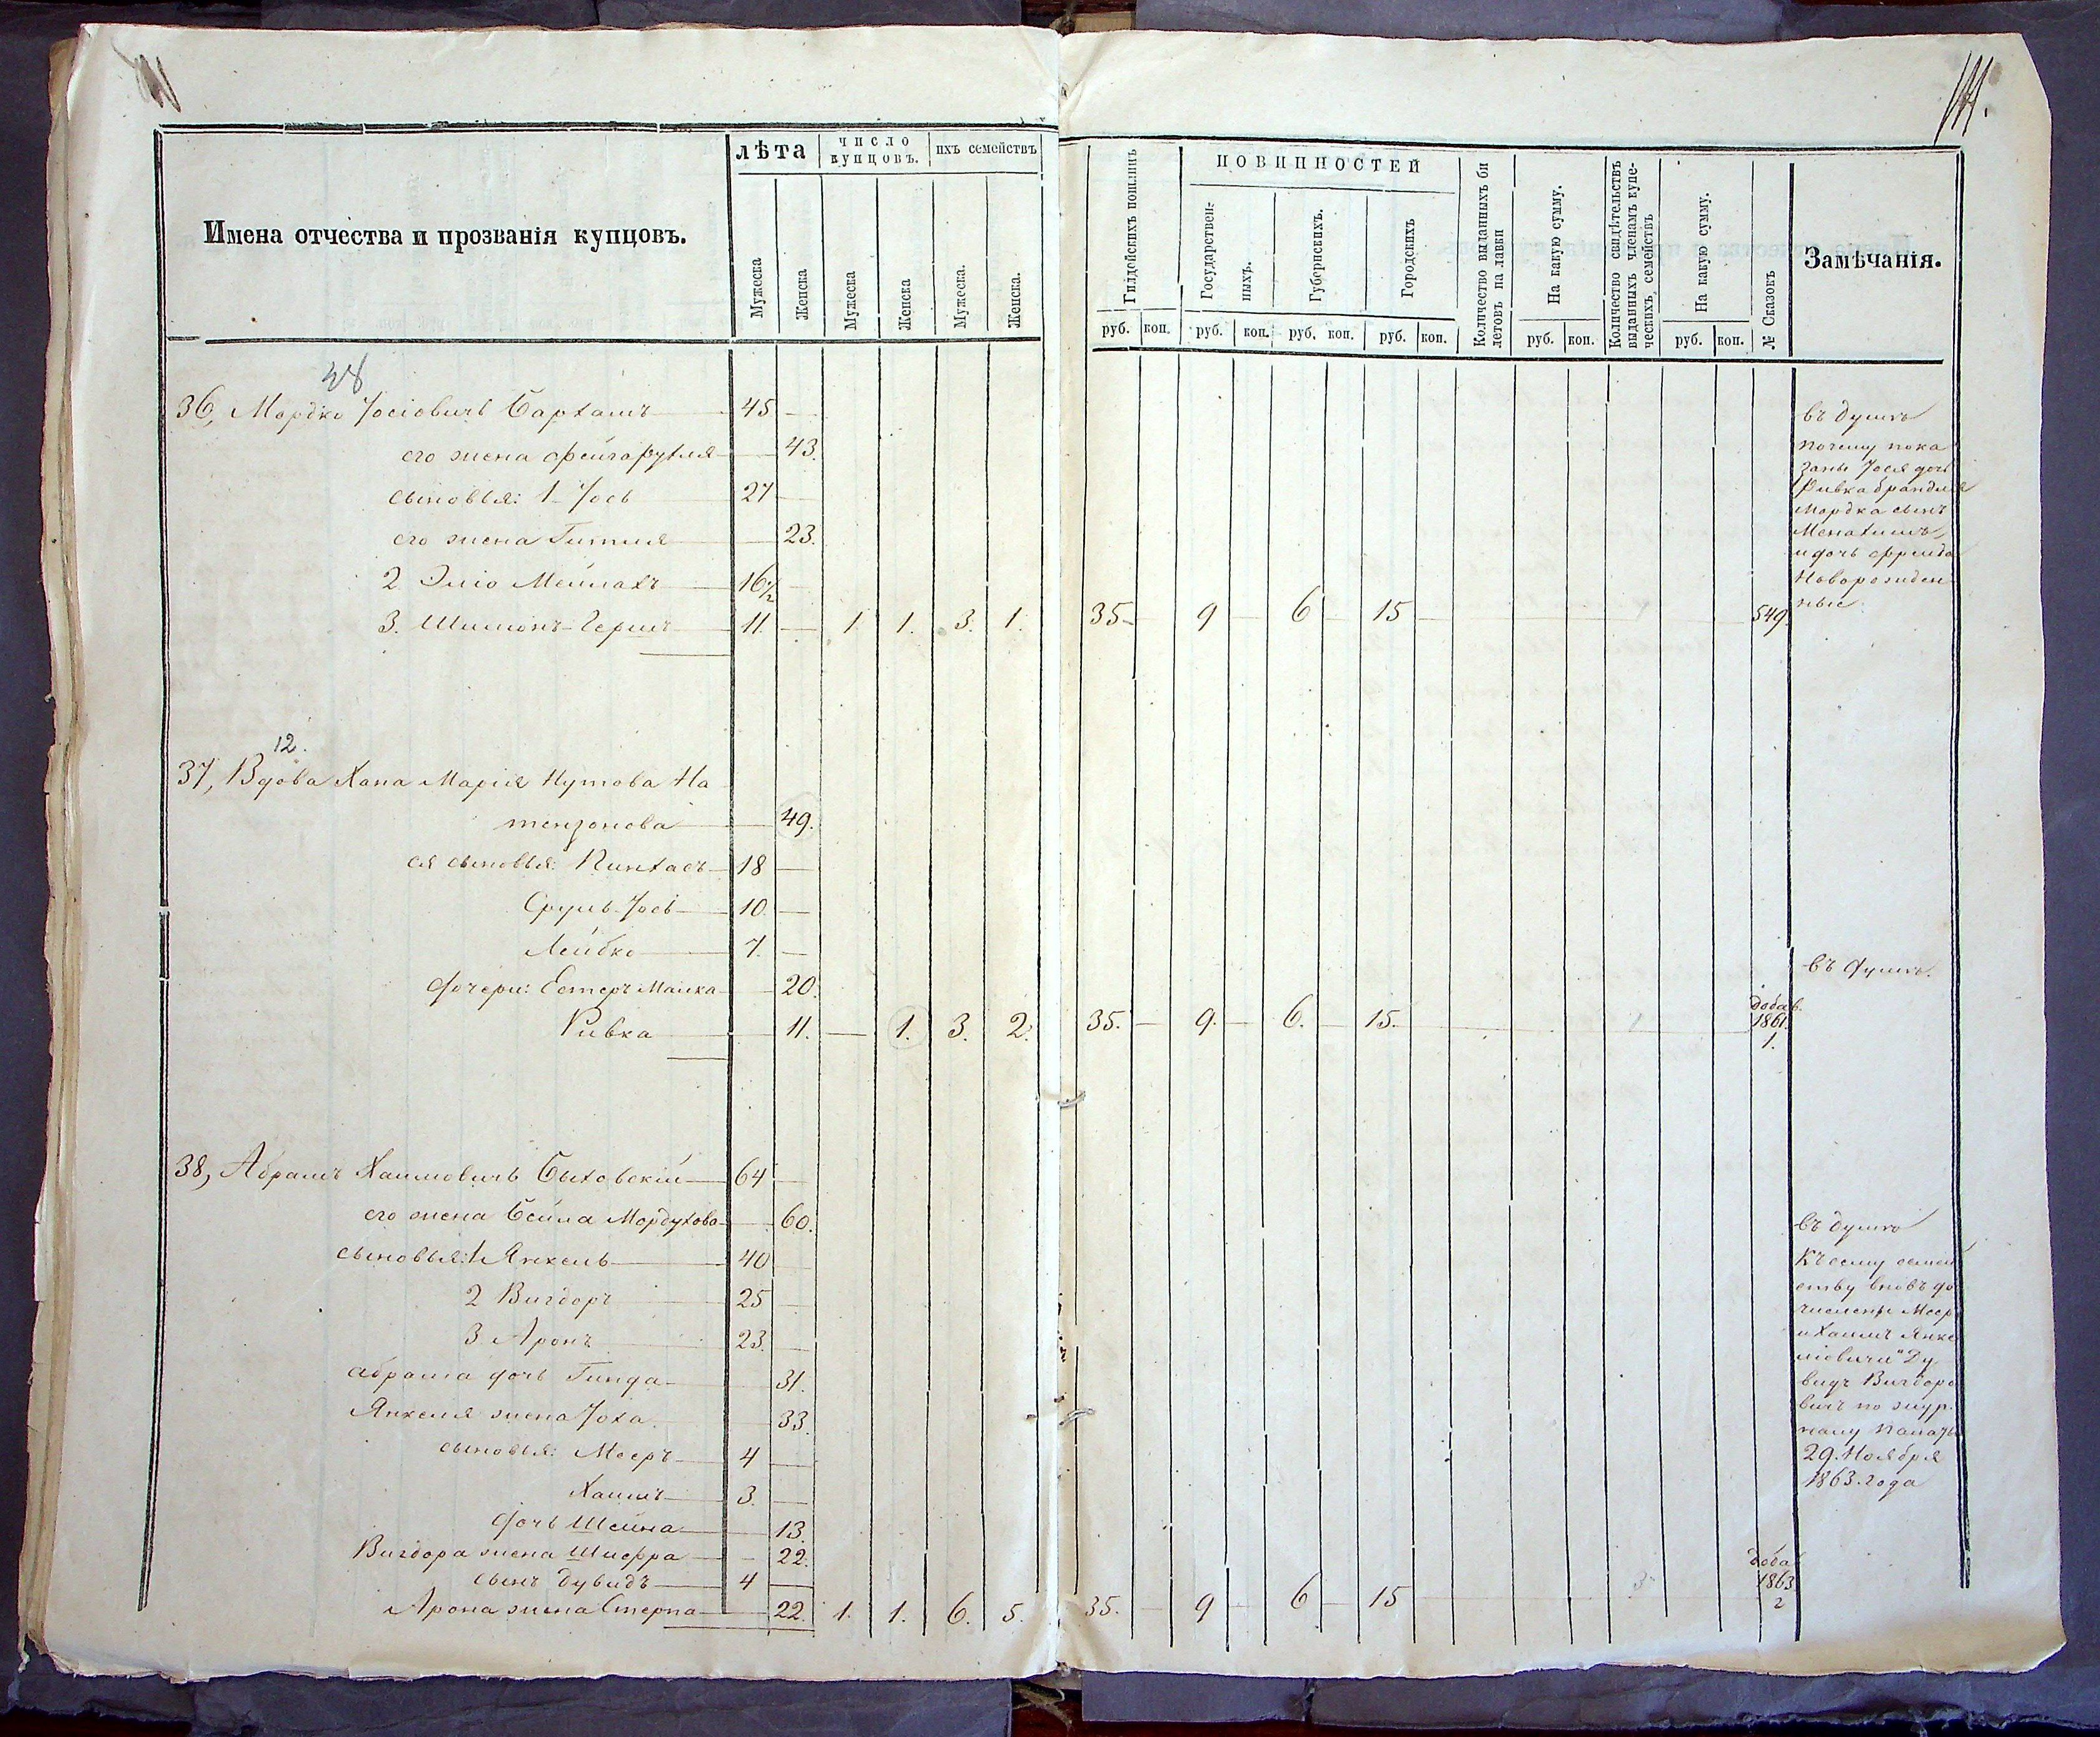 Имена отчества и прозванія купцовъ.
лѣта
число купцовъ.
ихъ семействъ
Мужеска
Женска
Мужеска
Женска
Мужеска.
Женска.
Гильдейскихъ пошлинъ
ПОВИННОСТЕЙ
Государственныхъ.
Губернскихъ.
Городскихъ
Количество выданныхъ билетовъ на лавки
На какую сумму.
Количество свидѣтельствъ выданныхъ членамъ купеческихъ семействъ
На какую сумму.
№ Сказокъ
Замѣчанія.
руб. коп. руб. коп. руб. коп. руб. коп. руб. коп. руб. коп.
36, Мордко Іосіовичъ Бархашъ 45 —
его жена Фейгарухля — 43.
сыновья: 1 Іось 27 —
его жена Гитля — 23.
2 Эліо Мейлахъ 16½ —
3. Шимонъ-Гершъ 11. — 1 1. 3. 1. 35 — 9 — 6 — 15 — 549.
въ Думѣ
почему пока
заны Іося дочь
Ривка брандля
Мордка сынъ
Менахимъ,
и дочь Фрейда
Новорожден
ные
12.
37, Вдова Хана Марія Нутова На
тензонова — 49.
ея сыновья: Пинхасъ 18 —
Сруль Іось 10 —
Лейбко 7. —
дочери: Естеръ Малка — 20.
Ривка — 11. — 1. 3. 2. 35. — 9. — 6. — 15. —
въ Думѣ.
добав.
1861.
1.
38, Абрамъ Хаимовичъ Быховскій 64 —
его жена Бейла Мордухова — 60.
сыновья: 1 Янкель 40 —
2 Вигдоръ 25 —
3 Аронъ 23. —
абрама дочь Гинда — 31.
Янкеля жена Іоха — 33.
сыновья: Мееръ 4 —
Хаимъ 3. —
дочь Шейна — 13.
Вигдора жена Шифра — 22.
сынъ Дувидъ 4 —
Арона жена Стерна — 22. 1. 1. 6. 5. 35. — 9 — 6 — 15
въ Думѣ
Къ сему семей
ству вновь до
числены Мееръ
и Хаимъ Янке
ліовичи Ду
видъ Вигдоро
вичъ по жур.
налу Палаты
29. Ноября
1863. года
доба
1863.
2